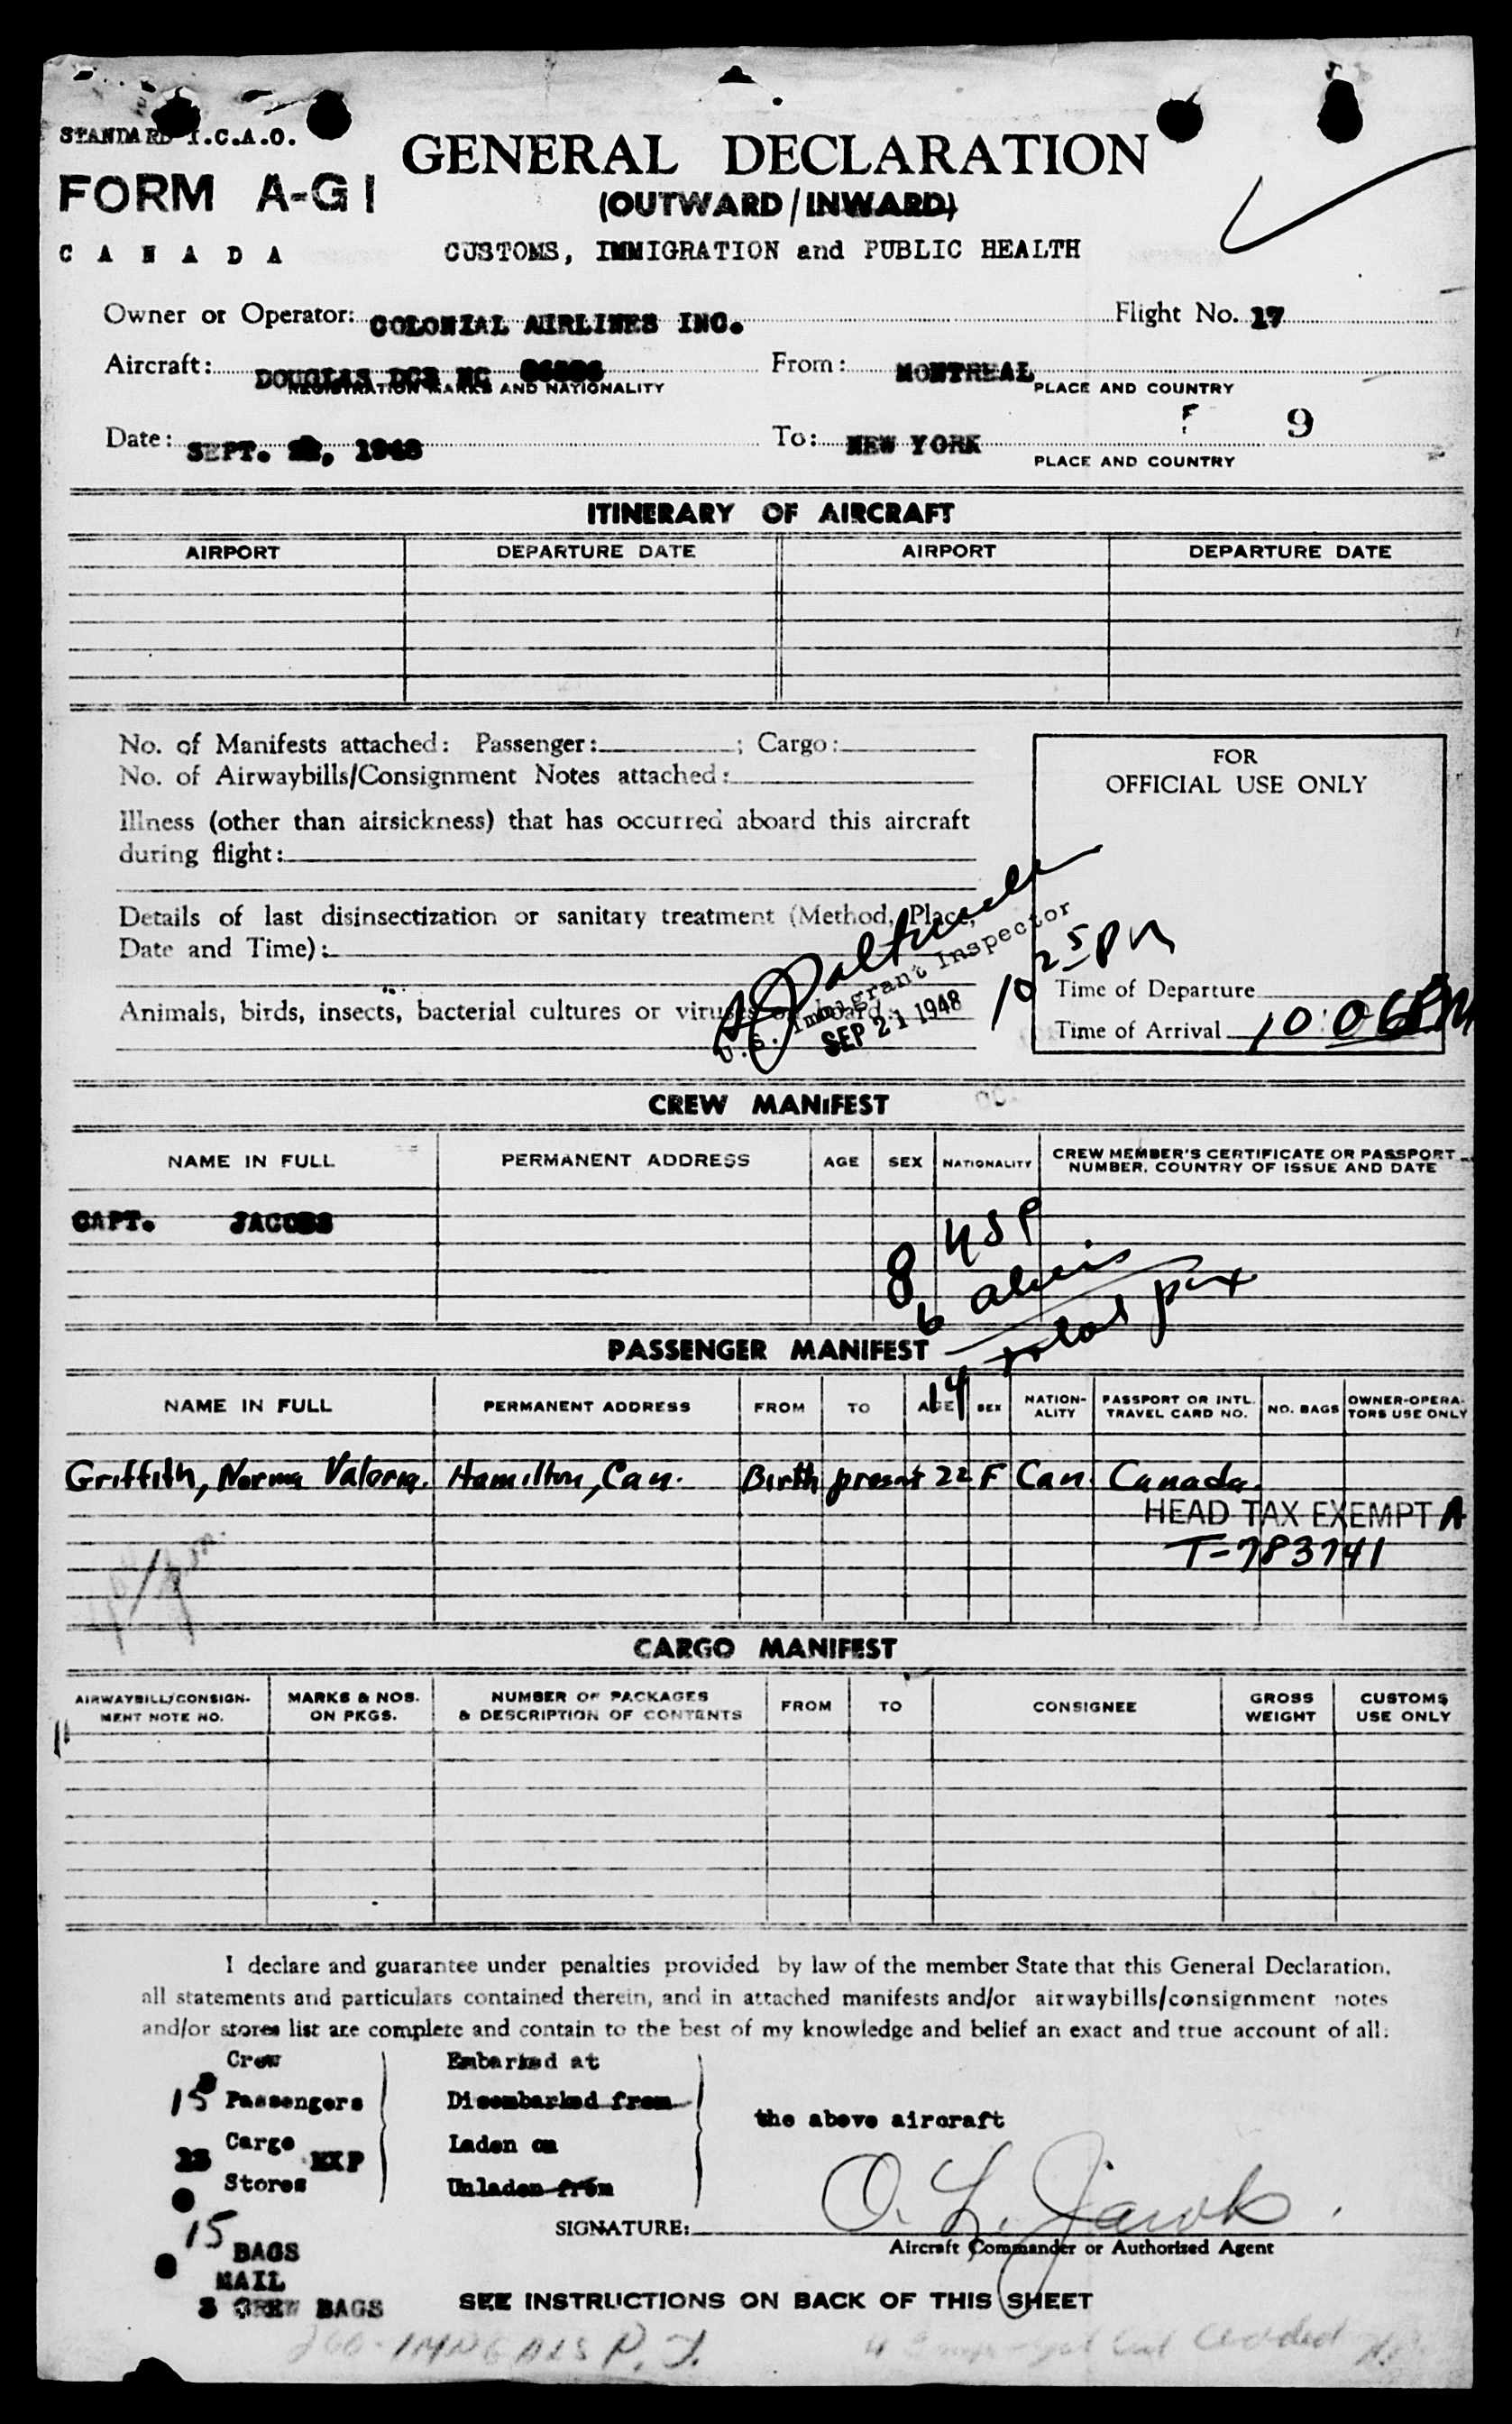 STANDARD I.C.A.O.
FORM A-G1
CANADA
GENERAL DECLARATION
(OUTWARD/INWARD)
CUSTOMS, IMMIGRATION and PUBLIC HEALTH
Owner or Operator: COLONIAL AIRLINES INC. Flight No. 17
Aircraft: DOUGLAS DC3 NC From: MONTREAL
REGISTRATION MARKS AND NATIONALITY PLACE AND COUNTRY
9
Date: SEPT. , 1948 To: NEW YORK
PLACE AND COUNTRY
ITINERARY OF AIRCRAFT
AIRPORT DEPARTURE DATE AIRPORT DEPARTURE DATE
No. of Manifests attached: Passenger: ; Cargo:
No. of Airwaybills/Consignment Notes attached:
Illness (other than airsickness) that has occurred aboard this aircraft
during flight:
Details of last disinsectization or sanitary treatment (Method, Place,
Date and Time):
Animals, birds, insects, bacterial cultures or viruses on board:
U.S. Immigrant Inspector
SEP 21 1948
FOR
OFFICIAL USE ONLY
10 25 PM
Time of Departure
Time of Arrival 10:06 PM
CREW MANIFEST
NAME IN FULL PERMANENT ADDRESS AGE SEX NATIONALITY CREW MEMBER'S CERTIFICATE OR PASSPORT
NUMBER, COUNTRY OF ISSUE AND DATE
CAPT. JACOBS
8 USP
6 aliens
14 total pax
PASSENGER MANIFEST
NAME IN FULL PERMANENT ADDRESS FROM TO AGE SEX NATION-ALITY PASSPORT OR INTL. TRAVEL CARD NO. NO. BAGS OWNER-OPERA-TORS USE ONLY
Griffith, Norma Valoria. Hamilton, Can. Birth present 22 F Can. Canada.
HEAD TAX EXEMPT A
T-783741
CARGO MANIFEST
AIRWAYBILL/CONSIGN-MENT NOTE NO. MARKS & NOS. ON PKGS. NUMBER OF PACKAGES & DESCRIPTION OF CONTENTS FROM TO CONSIGNEE GROSS WEIGHT CUSTOMS USE ONLY
I declare and guarantee under penalties provided by law of the member State that this General Declaration,
all statements and particulars contained therein, and in attached manifests and/or airwaybills/consignment notes
and/or stores list are complete and contain to the best of my knowledge and belief an exact and true account of all:
Crew Embarked at
15 Passengers Disembarked from
the above aircraft
Cargo EXP Laden on
Stores Unladen from
O. L. Jacobs
SIGNATURE:
Aircraft Commander or Authorized Agent
15 BAGS
MAIL
3 CREW BAGS
SEE INSTRUCTIONS ON BACK OF THIS SHEET